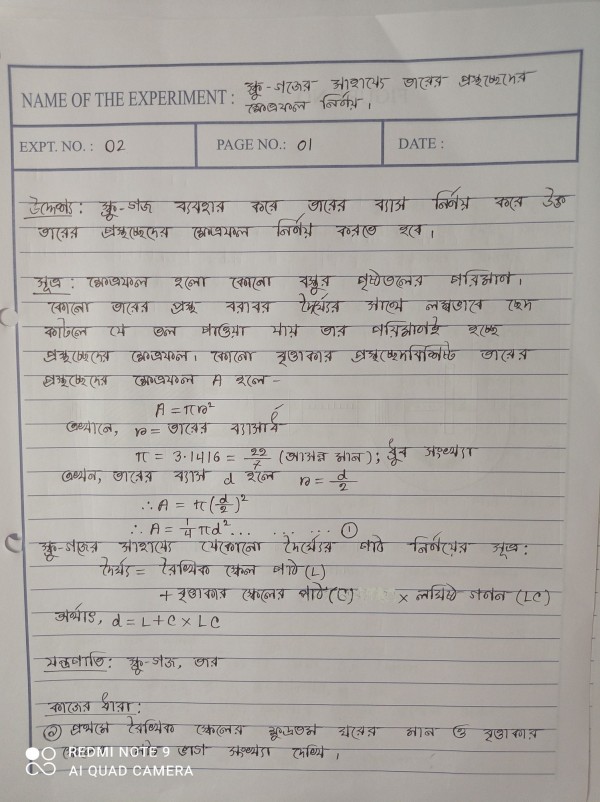 NAME OF THE EXPERIMENT : স্ক্রু-গজের সাহায্যে তারের প্রস্থচ্ছেদের
ক্ষেত্রফল নির্ণয়।
EXPT. NO. : 02 PAGE NO.: 01 DATE :
উদ্দেশ্য : স্ক্রু-গজ ব্যবহার করে তারের ব্যাস নির্ণয় করে উক্ত
তারের প্রস্থচ্ছেদের ক্ষেত্রফল নির্ণয় করতে হবে।
সূত্র : ক্ষেত্রফল হলো কোনো বস্তুর পৃষ্ঠতলের পরিমাণ।
কোনো তারের প্রস্থ বরাবর দৈর্ঘ্যের সাথে লম্বভাবে ছেদ
কাটলে যে তল পাওয়া যায় তার পরিমাণই হচ্ছে
প্রস্থচ্ছেদের ক্ষেত্রফল। কোনো বৃত্তাকার প্রস্থচ্ছেদবিশিষ্ট তারের
প্রস্থচ্ছেদের ক্ষেত্রফল A হলে-
A = πr²
এখানে, r = তারের ব্যাসার্ধ
π = 3.1416 = 22/7 (আসন্ন মান); ধ্রুব সংখ্যা
এখন, তারের ব্যাস d হলে r = d/2
∴ A = π(d/2)²
∴ A = 1/4 πd² ... ... ... ... ①
স্ক্রু-গজের সাহায্যে যেকোনো দৈর্ঘ্যের পাঠ নির্ণয়ের সূত্র:
দৈর্ঘ্য = রৈখিক স্কেল পাঠ (L)
+ বৃত্তাকার স্কেলের পাঠ (C) × লঘিষ্ঠ গণন (LC)
অর্থাৎ, d = L + C × LC
যন্ত্রপাতি: স্ক্রু-গজ, তার
কাজের ধারা:
প্রথমে রৈখিক স্কেলের ক্ষুদ্রতম ঘরের মান ও বৃত্তাকার
ভাগ সংখ্যা দেখি।
REDMI NOTE 9
AI QUAD CAMERA